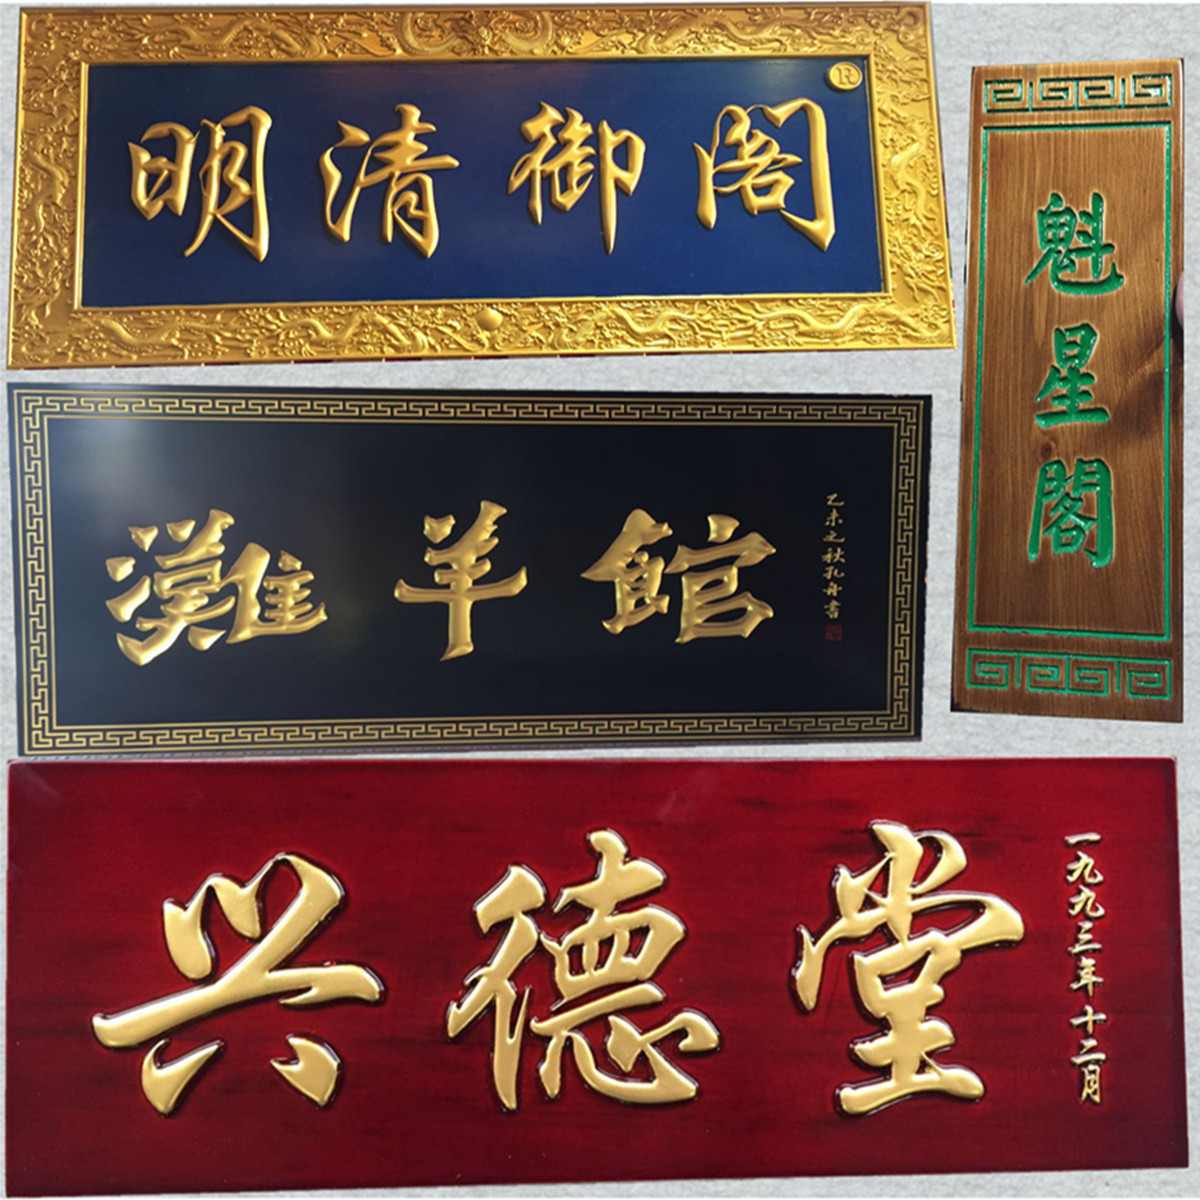 明清御阁
R
魁星閣
灘羊館
乙未之秋孔舟書
兴德堂
一九九三年十二月